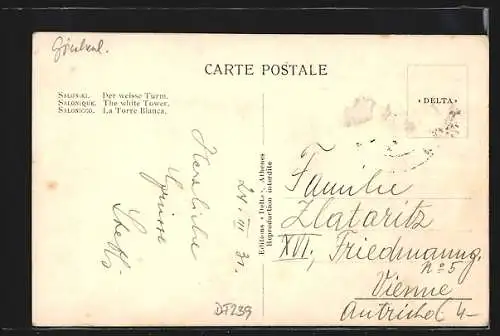 Griechenl.
CARTE POSTALE
SALONIKI. Der weisse Turm.
SALONIQUE. The white Tower.
SALONICCO. La Torre Bianca.
• DELTA •
Herzliche
Grüsse
Steffi
24. III 31.
Editions «Delta», Athènes
Reproduction interdite
Familie
Zlataritz
XVI., Friedmanng.
No 5
Vienne
Autriche 4-
DF239